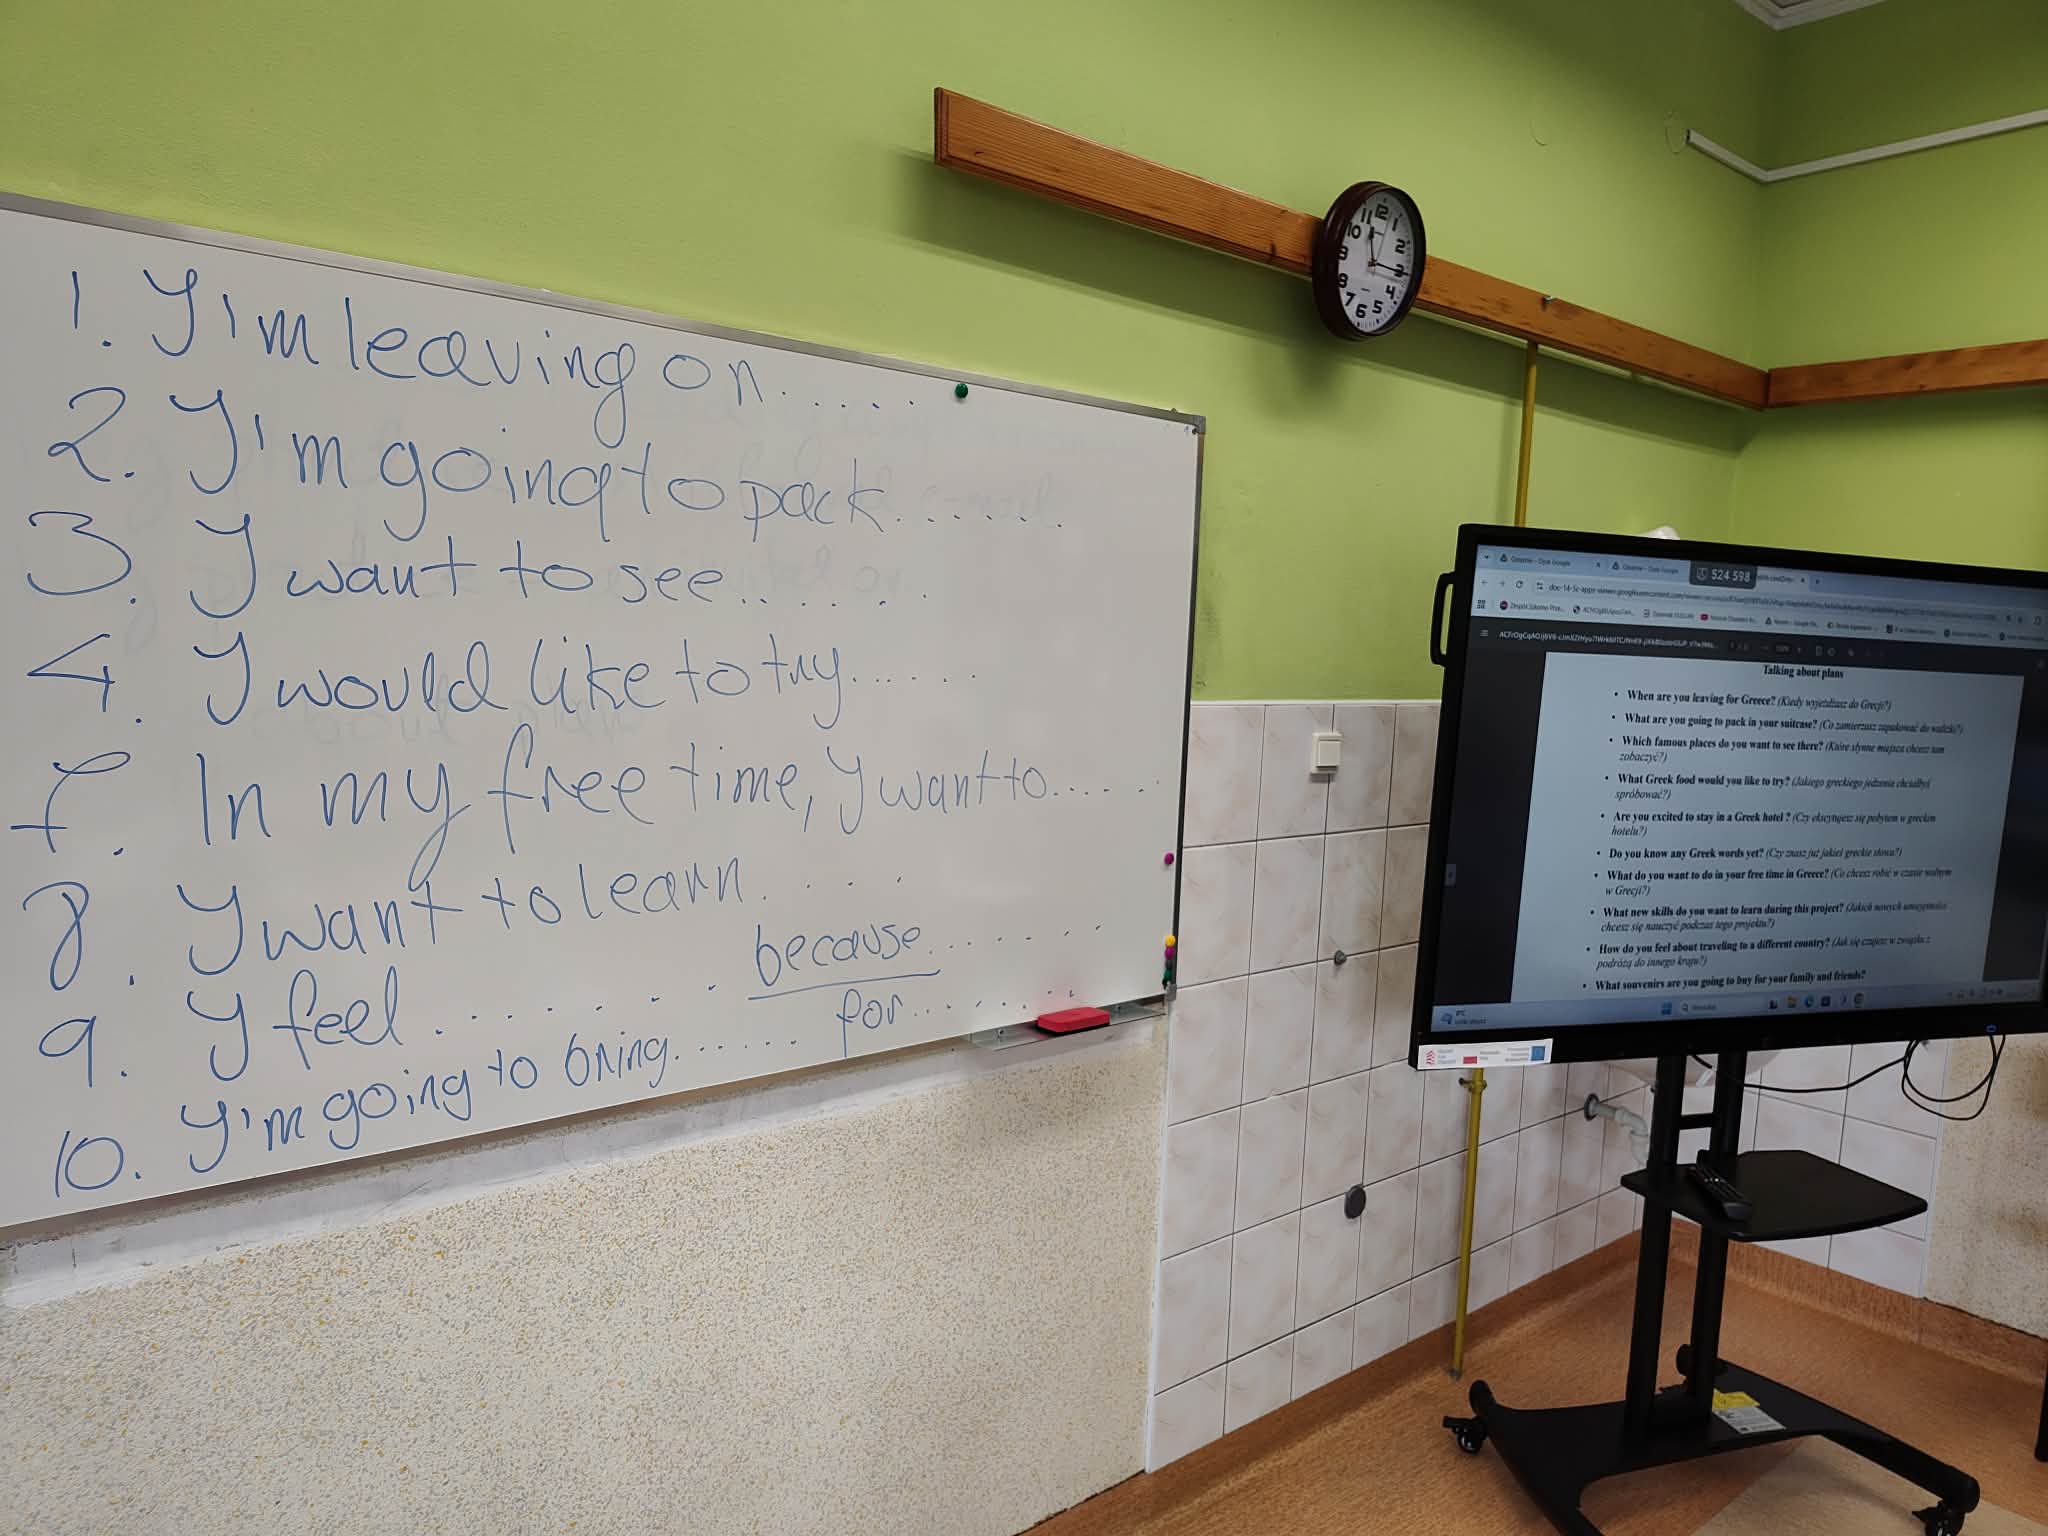 1. I'm leaving on.....
2. I'm going to pack......
3. I want to see......
4. I would like to try.....
7. In my free time, I want to......
8. I want to learn....
9. I feel....... because.......
10. I'm going to bring...... for.......
11 12 1
10 2
9 3
8 4
7 6 5
524 598
Talking about plans
• When are you leaving for Greece? (Kiedy wyjeżdżasz do Grecji?)
• What are you going to pack in your suitcase? (Co zamierzasz zapakować do walizki?)
• Which famous places do you want to see there? (Które słynne miejsca chcesz tam
zobaczyć?)
• What Greek food would you like to try? (Jakiego greckiego jedzenia chciałbyś
spróbować?)
• Are you excited to stay in a Greek hotel ? (Czy ekscytujesz się pobytem w greckim
hotelu?)
• Do you know any Greek words yet? (Czy znasz już jakieś greckie słowa?)
• What do you want to do in your free time in Greece? (Co chcesz robić w czasie wolnym
w Grecji?)
• What new skills do you want to learn during this project? (Jakich nowych umiejętności
chcesz się nauczyć podczas tego projektu?)
• How do you feel about traveling to a different country? (Jak się czujesz w związku z
podróżą do innego kraju?)
• What souvenirs are you going to buy for your family and friends?